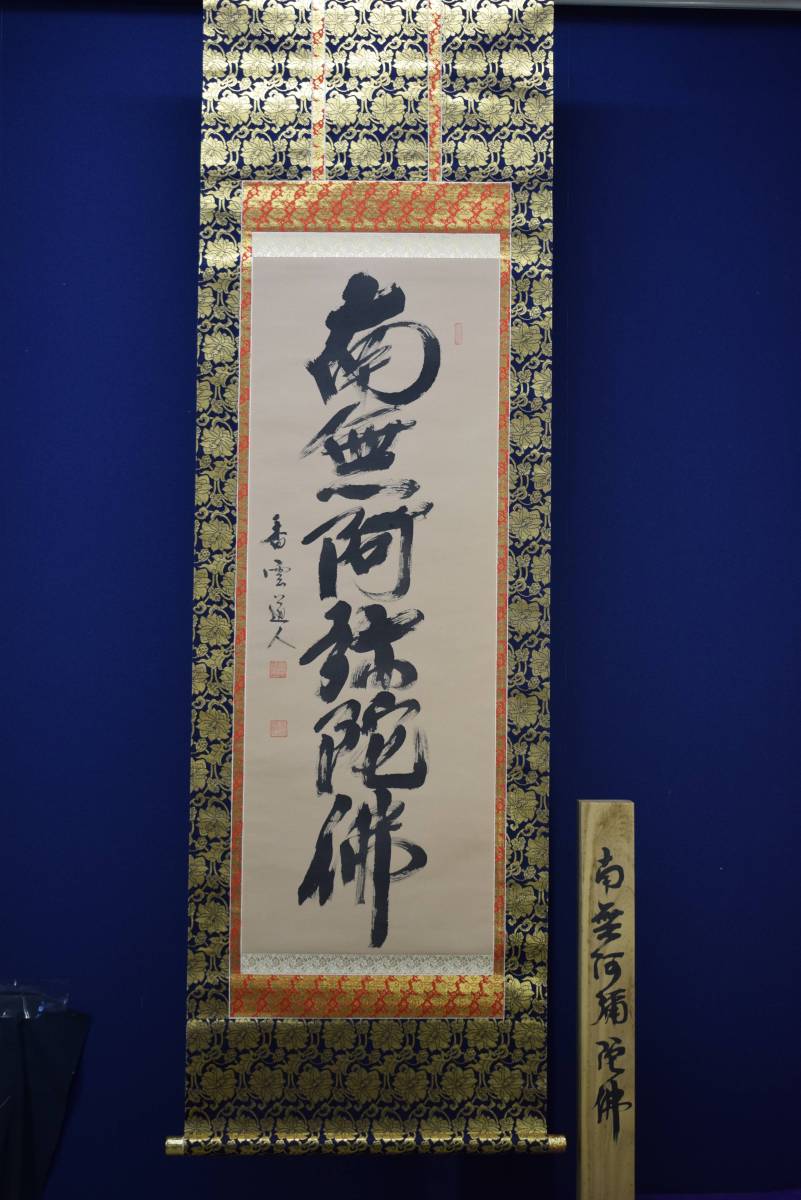 南無阿弥陀佛
香雲道人
南無阿彌陀佛